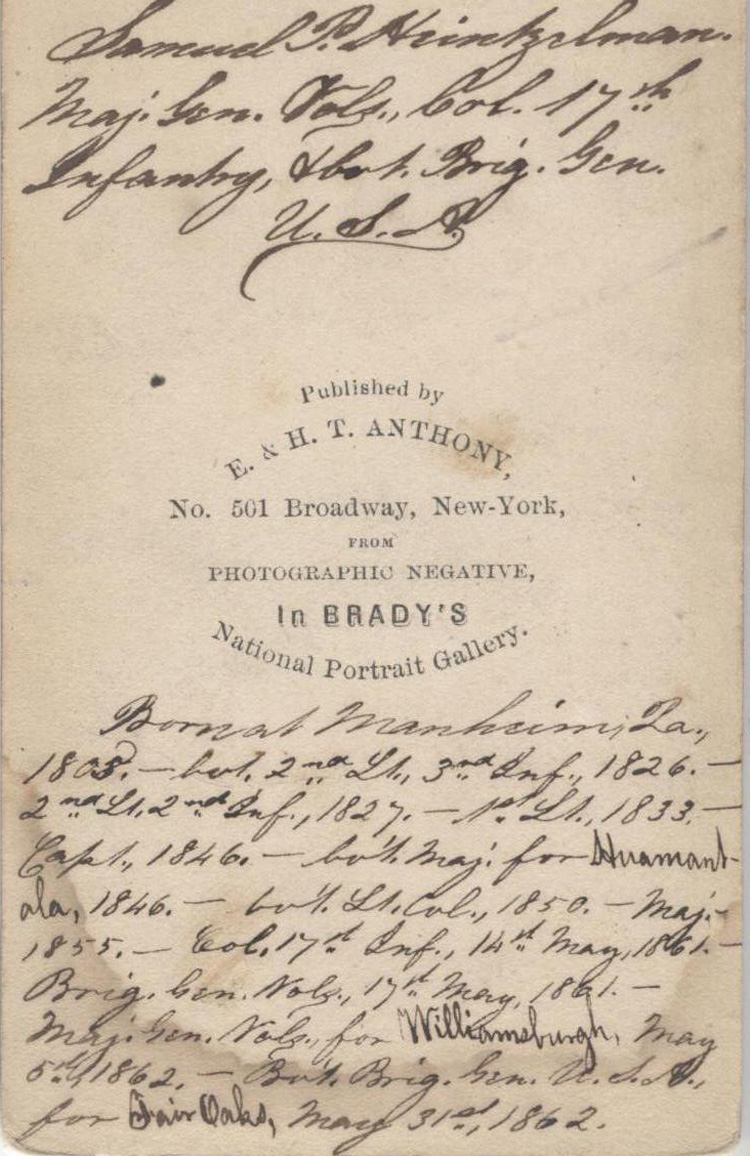 Samuel P. Heintzelman.
Maj. Gen. Vols., Col. 17th
Infantry, & bvt. Brig. Gen.
U. S. A.
Published by
E. & H. T. ANTHONY,
No. 501 Broadway, New-York,
FROM
PHOTOGRAPHIC NEGATIVE,
In BRADY'S
National Portrait Gallery.
Born at Manheim, Pa.,
1805. — bvt. 2nd Lt., 3rd Inf., 1826. —
2nd Lt. 2nd Inf., 1827. — 1st Lt., 1833. —
Capt., 1846. — bvt. Maj. for Huamant-
ala, 1846. — bvt. Lt. Col., 1850. — Maj.
1855. — Col. 17th Inf., 14th May, 1861. —
Brig. Gen. Vols., 17th May, 1861. —
Maj. Gen. Vols., for Williamsburgh, May
5th, 1862. — Bvt. Brig. Gen. U. S. A.,
for Fair Oaks, May 31st, 1862.